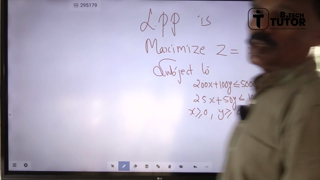 295179
L.P.P is
Maximize Z =
Subject to
200x+100y≤500
25x+50y≤1
x≥0, y≥
B.TECH
TUTOR